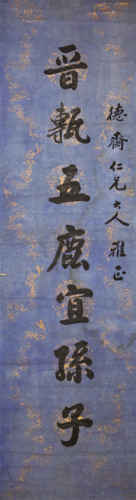 德齋仁兄大人雅正
晉甎五鹿宜孫子